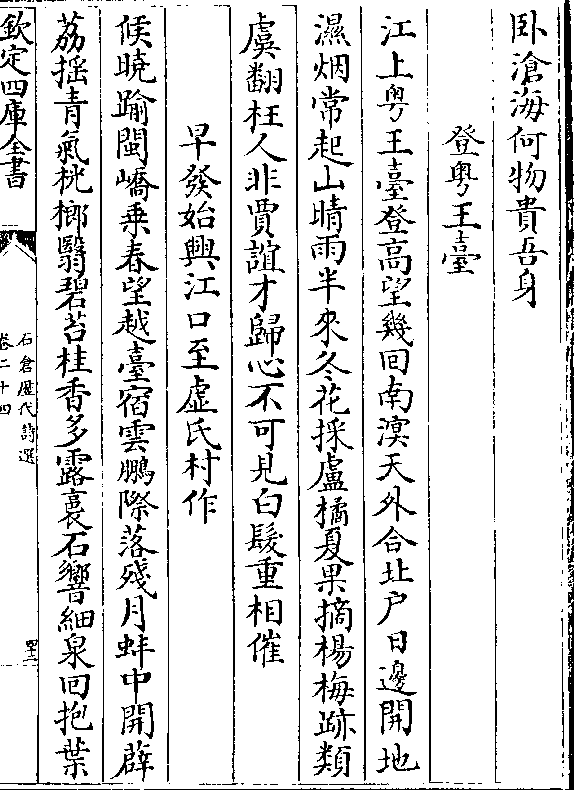 卧滄海何物貴吾身
登粤王臺
江上粤王臺登髙望幾回南溟天外合北户日邊開地
濕烟常起山晴雨半來冬花採盧橘夏果摘楊梅跡類
虞翻枉人非賈誼才歸心不可見白髮重相催
早發始興江口至虚氏村作
候曉踰閩嶠乗春望越臺宿雲鵬際落殘月蚌中開薜
荔揺青氣桄榔翳碧苔桂香多露裛石響細泉回抱葉
欽定四庫全書
石倉歴代詩選
卷二十四